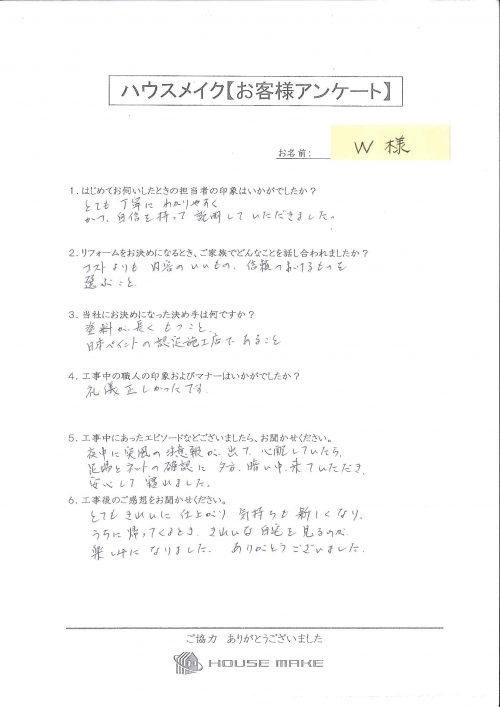 ハウスメイク【お客様アンケート】
お名前: W 様
1．はじめてお伺いしたときの担当者の印象はいかがでしたか？
とても丁寧に わかりやすく
かつ、自信を持って 説明していただきました。
2．リフォームをお決めになるとき、ご家族でどんなことを話し合われましたか？
コストよりも 内容のいいもの、信頼のおけるものを
選ぶこと
3．当社にお決めになった決め手は何ですか？
塗料が、長くもつこと、
日本ペイントの認定施工店であること
4．工事中の職人の印象およびマナーはいかがでしたか？
礼儀正しかったです
5．工事中にあったエピソードなどございましたら、お聞かせください。
夜中に突風の注意報が、出て、心配していたら、
足場とネットの確認に 夕方、暗い中、来ていただき、
安心して 寝れました。
6．工事後のご感想をお聞かせください。
とても きれいに 仕上がり 気持ちも 新しくなり、
うちに帰ってくるとき、きれいな自宅を見るのが、
楽しみに なりました。 ありがとうございました。
ご協力 ありがとうございました
HOUSE MAKE